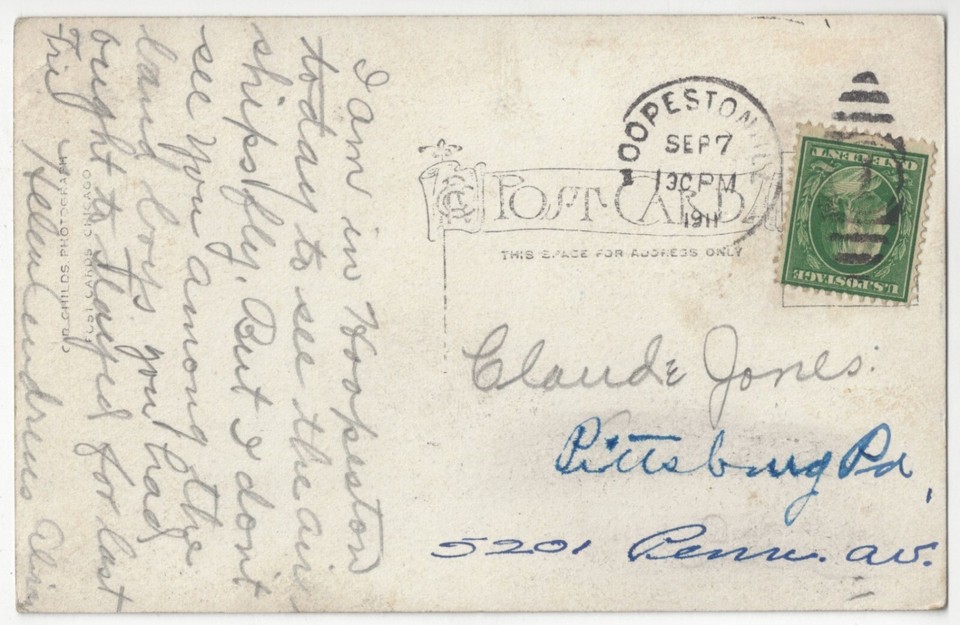 I am in Hoopeston
today to see the air
ships fly. But I dont
see you among the
land boys you had
ought to stayed for last
Fri
CR CHILDS PHOTOGRAPH
POST CARDS CHICAGO
HOOPESTON, ILL.
SEP 7
130 PM
1911
POST CARD
THIS SPACE FOR ADDRESS ONLY
ONE CENT
U.S. POSTAGE
Claude Jones.
Pittsburg Pa,
5201 Penn. av.